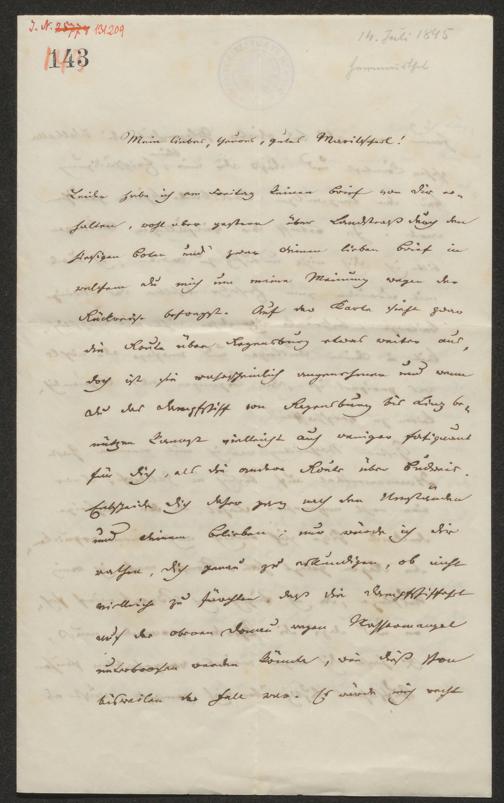 J. N. 25774 131209
143
14. Juli 1845
Mein liebes, theures, gutes
Leider habe ich am Freitag keinen Brief von Dir er-
halten, wohl aber gestern über Landstraß durch den
hiesigen Boten und zwar deinen lieben Brief in
welchem du mich um meine Meinung wegen der
Rückreise befragst. Auf der Karte sieht zwar
die Route über Regensburg etwas weiter aus,
doch ist sie wahrscheinlich angenehmer und wenn
du das Dampfschiff von Regensburg bis Linz be-
nützen kannst vielleicht auch weniger fatiguant
für Dich, als die andere Route über Budweis.
Entscheide Dich daher ganz nach den Umständen
und deinem Belieben; nur würde ich dir
rathen, Dich genau zu erkundigen, ob nicht
vielleicht zu fürchten, daß die Dampfschiffahrt
auf der oberen Donau wegen Wassermangel
unterbrochen werden könnte, wie dieß schon
bisweilen der Fall war. Es würde mich recht